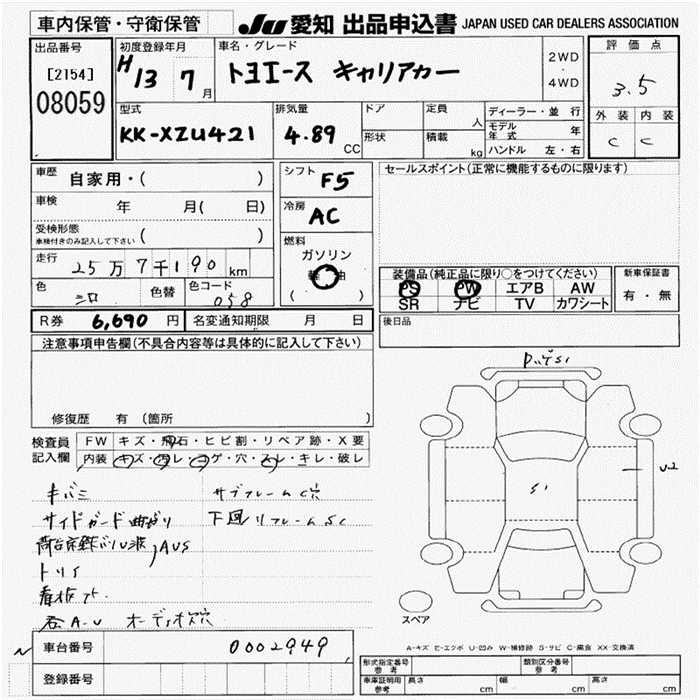 車内保管・守衛保管
JU 愛知 出品申込書 JAPAN USED CAR DEALERS ASSOCIATION
出品番号 初度登録年月 車名・グレード 評価点
[2154] H13 7月 トヨエース キャリアカー 2WD・4WD 3.5
08059
型式 排気量 ドア 定員 人 ディーラー・並行 外装 内装
KK-XZU421 4.89 CC 形状 積載 kg モデル年式 年 C C
ハンドル 左・右
車歴 自家用・( ) シフト F5 セールスポイント(正常に機能するものに限ります)
車検 年 月( 日) 冷房 AC
受検形態 車検付きのみ記入して下さい ( )
燃料 ガソリン 軽油 ( )
走行 25万7千190km
装備品(純正品に限り○をつけてください) 新車保証書
色 シロ 色替 色コード 058
PS PW エアB AW 有・無
SR ナビ TV カワシート
R券 6,690円 名変通知期限 月 日 後日品
注意事項申告欄(不具合内容等は具体的に記入して下さい)
修復歴 有 (箇所
検査員記入欄 FW キズ・飛石・ヒビ割・リペア跡・X要
内装 キズ・汚レ・コゲ・穴・スレ・キレ・破レ
キバミ サブフレームC穴
サイドガード曲がり 下回リフレームSC
AUS
トリイ
看板ア
A-U オーディオ穴
S1
S1
U2
スペア
A-キズ E-エクボ U-凹み W-補修跡 S-サビ C-腐食 XX-交換済
車台番号 0002949
登録番号
形式指定番号 参考 類別区分番号 参考
車庫証明用 参考 長さ cm 幅 cm 高さ cm